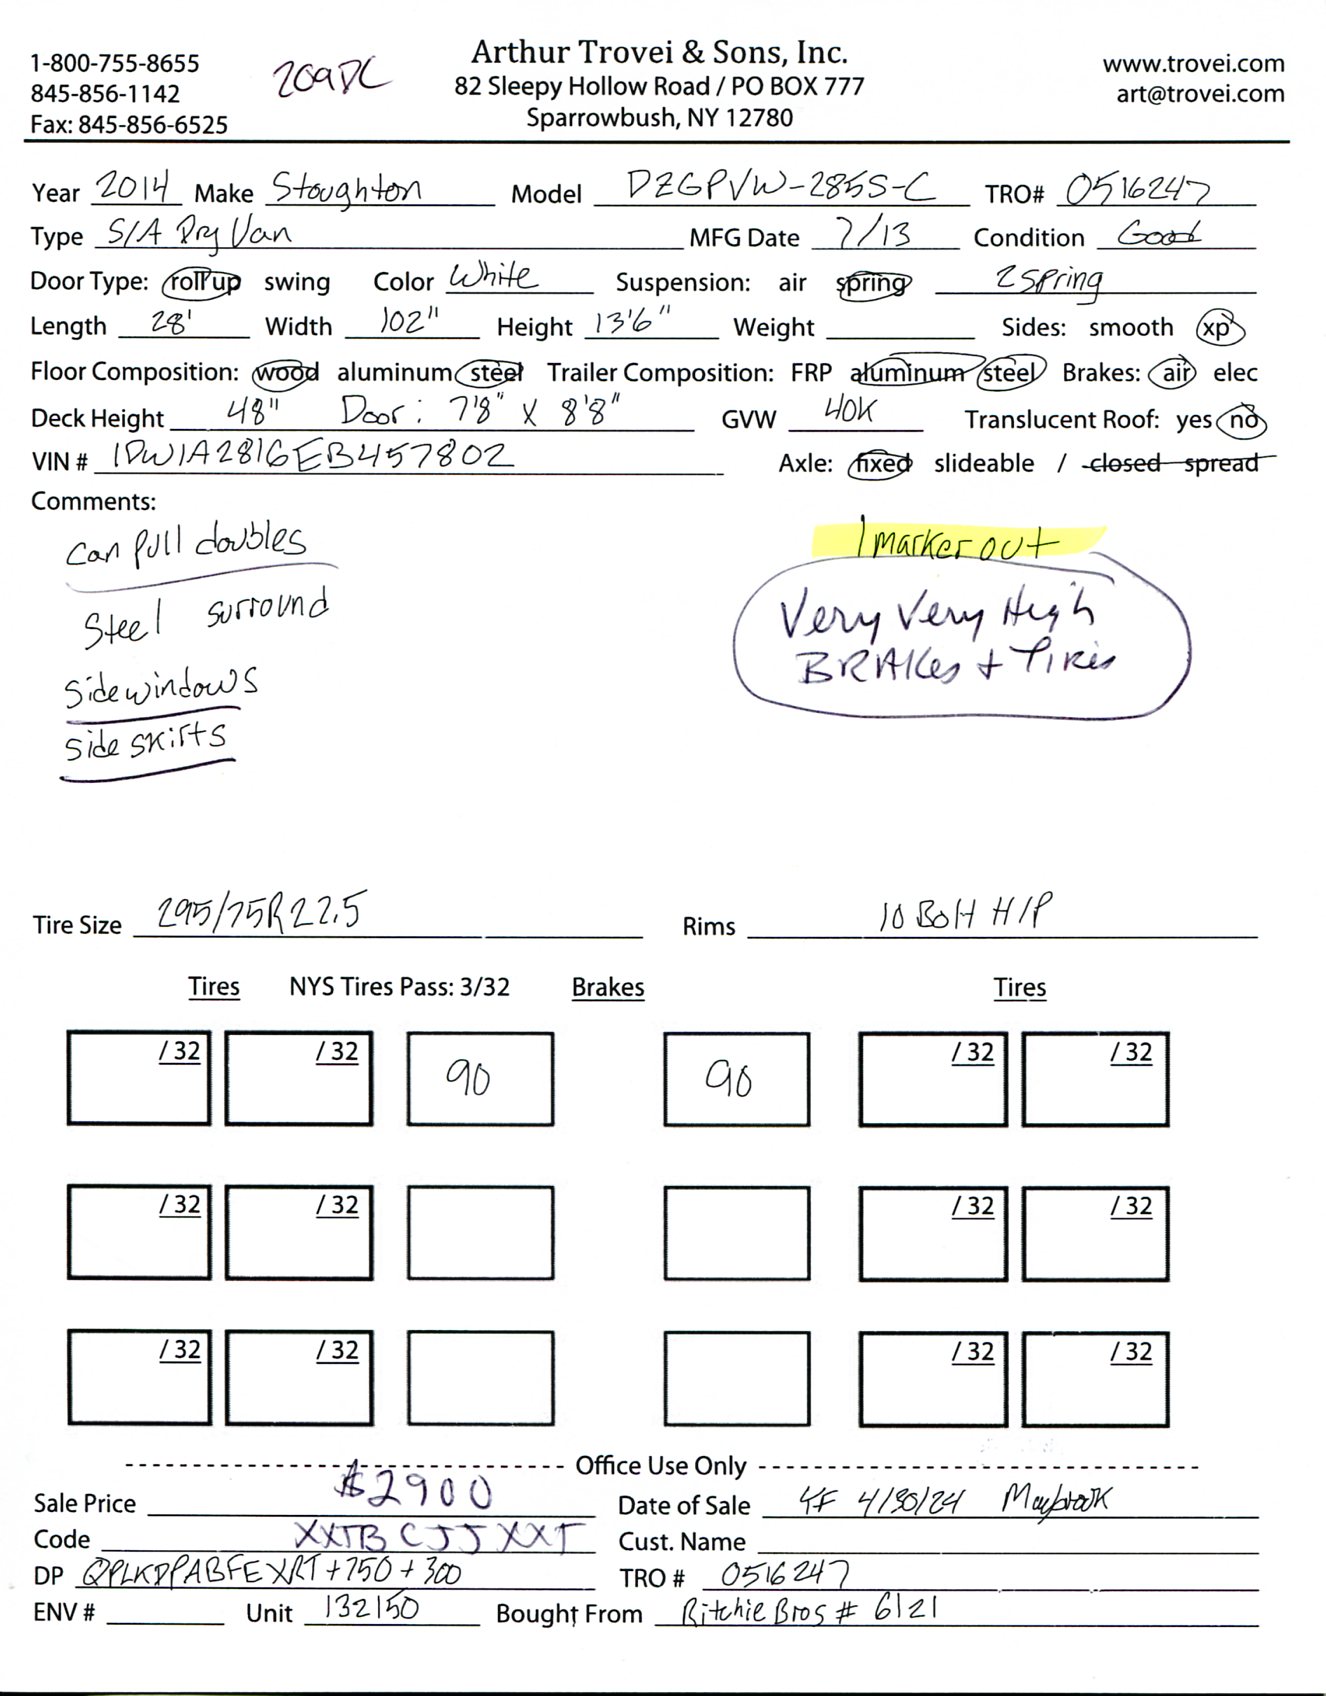 1-800-755-8655
845-856-1142
Fax: 845-856-6525
209DC
Arthur Trovei & Sons, Inc.
82 Sleepy Hollow Road / PO BOX 777
Sparrowbush, NY 12780
www.trovei.com
art@trovei.com
Year 2014 Make Stoughton Model DZGPVW-285S-C TRO# 0516247
Type S/A Dry Van MFG Date 7/13 Condition Good
Door Type: roll up swing Color White Suspension: air spring 2 spring
Length 28' Width 102" Height 13'6" Weight Sides: smooth xp
Floor Composition: wood aluminum steel Trailer Composition: FRP aluminum steel Brakes: air elec
Deck Height 48" Door: 7'8" X 8'8" GVW 40K Translucent Roof: yes no
VIN # 1DW1A2816EB457802 Axle: fixed slideable / closed spread
Comments:
can pull doubles
Steel surround
side windows
side skirts
1 marker out
Very Very High
BRAKes + TIRes
Tire Size 295/75R22.5 Rims 10 Bolt H/P
Tires NYS Tires Pass: 3/32 Brakes Tires
/ 32 / 32 90 90 / 32 / 32
/ 32 / 32 / 32 / 32
/ 32 / 32 / 32 / 32
Office Use Only
Sale Price $2900 Date of Sale 4/30/24 Maybrook
Code XXTBCJJXXT Cust. Name
DP QPLKDPABFEXRT+750+300 TRO # 0516247
ENV # Unit 132150 Bought From Ritchie Bros # 6121